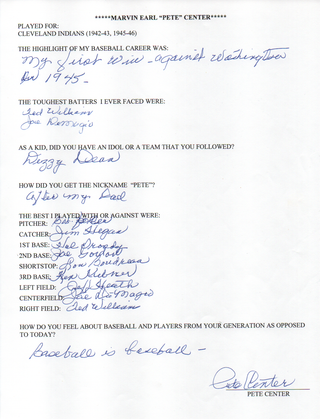 *****MARVIN EARL "PETE" CENTER*****
PLAYED FOR:
CLEVELAND INDIANS (1942-43, 1945-46)
THE HIGHLIGHT OF MY BASEBALL CAREER WAS:
My first win - against Washington
in 1945.
THE TOUGHEST BATTERS I EVER FACED WERE:
Ted William
Joe DiMagio
AS A KID, DID YOU HAVE AN IDOL OR A TEAM THAT YOU FOLLOWED?
Dizzy Dean
HOW DID YOU GET THE NICKNAME "PETE"?
After my Dad
THE BEST I PLAYED WITH OR AGAINST WERE:
PITCHER: Bob Feller
CATCHER: Jim Hegan
1ST BASE:
2ND BASE: Joe Gordon
SHORTSTOP: Lou Boudreau
3RD BASE: Ken Keltner
LEFT FIELD: Jeff Heath
CENTERFIELD: Joe DiMagio
RIGHT FIELD: Ted William
HOW DO YOU FEEL ABOUT BASEBALL AND PLAYERS FROM YOUR GENERATION AS OPPOSED
TO TODAY?
Baseball is baseball -
Pete Center
PETE CENTER